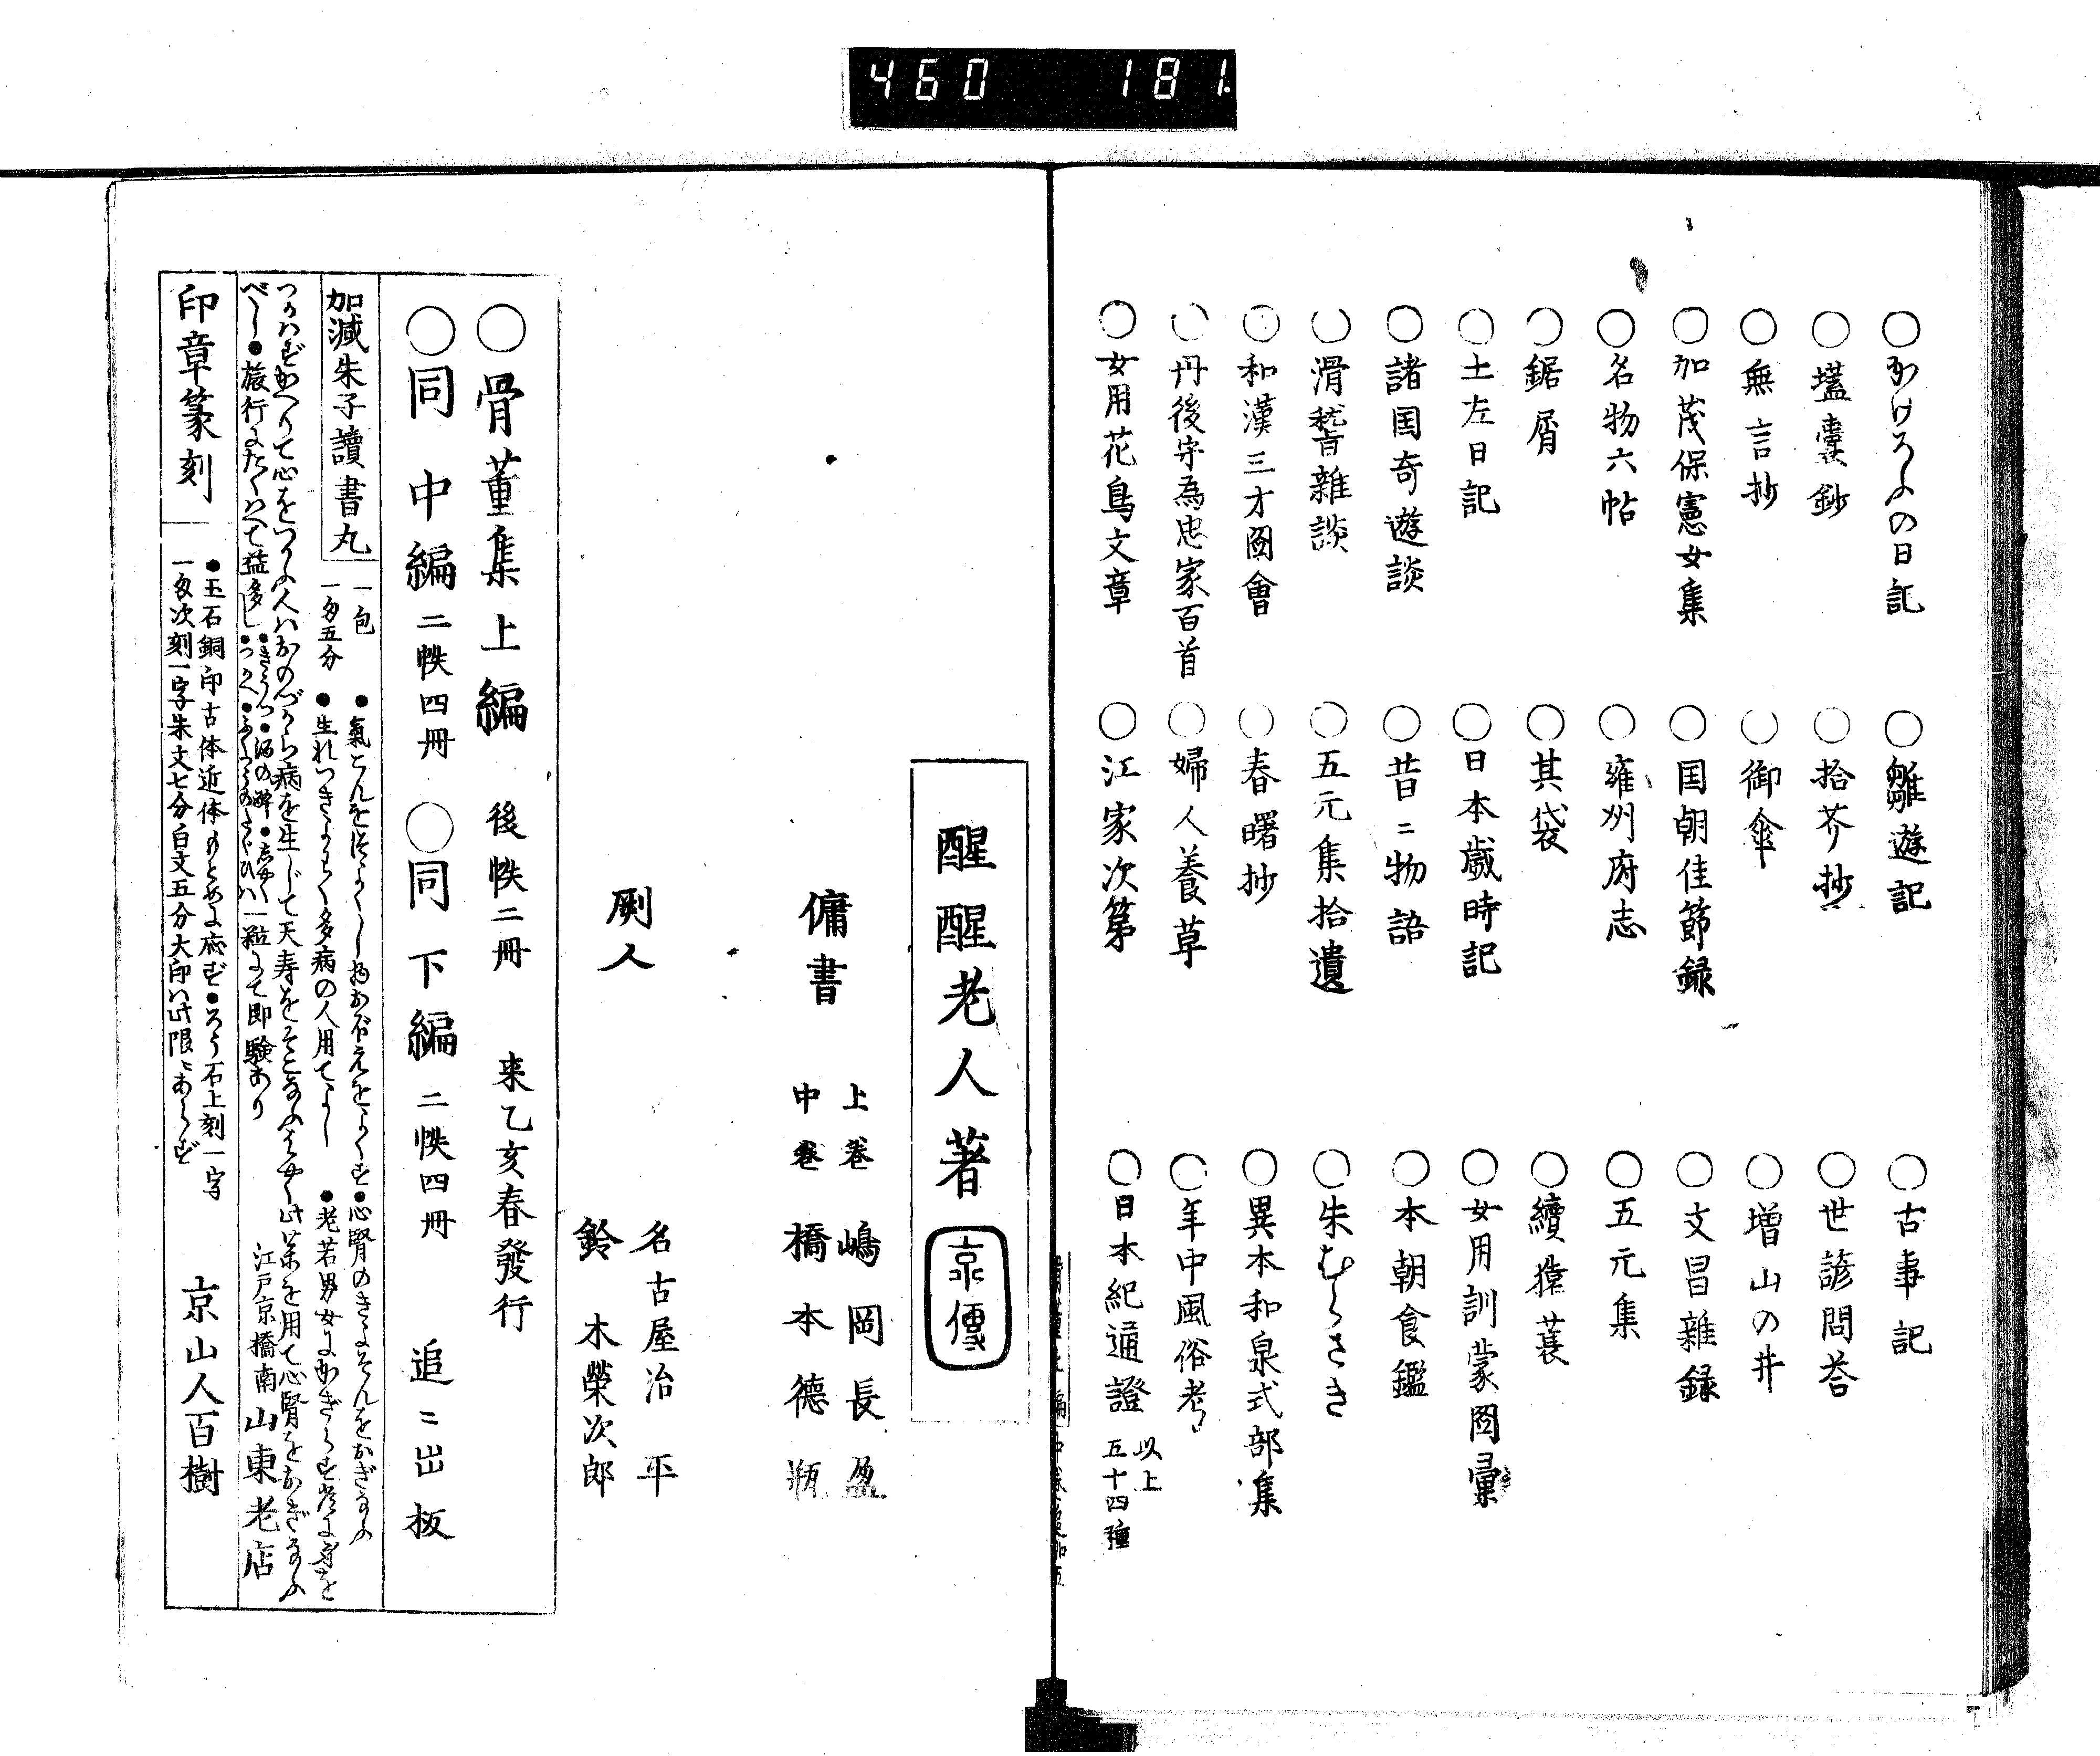 460 181
○かげろふの日記
○雛遊記
○古事記
○壒囊鈔
○拾芥抄
○世諺問答
○無言抄
○御傘
○増山の井
○加茂保憲女集
○国朝佳節録
○文昌雜録
○名物六帖
○雍州府志
○五元集
○鋸屑
○其袋
○續猿蓑
○土左日記
○日本歳時記
○女用訓蒙圖彙
○諸国奇遊談
○昔〻物語
○本朝食鑑
○滑稽雜談
○五元集拾遺
○朱むらさき
○和漢三才圖會
○春曙抄
○異本和泉式部集
○丹後守為忠家百首
○婦人養草
○年中風俗考
○女用花鳥文章
○江家次第
○日本紀通證
以上
五十四種
醒醒老人著
京傳
傭書
上巻 嶋岡長盈
中巻 橋本德瓶
剧人
名古屋治平
鈴木榮次郎
○骨董集上編 後帙二冊 来乙亥春發行
○同中編 二帙四冊 ○同下編 二帙四冊 追〻出板
加減朱子讀書丸
一包
一匁五分
●氣こんをつよくし物おぼえをよくす●心腎のきよそんをおぎなふ
●生れつきよわく多病の人用てよし ●老若男女にかぎらず常に身を
つかはずかへりて心をつかふ人はおのづから病を生じて天寿をそこなふはやく此薬を用て心腎をおぎなふ
べし●旅行にたくはへて益多し
一粒にて即験あり
江戸京橋南 山東老店
印章篆刻
●玉石銅印古体近体もとめに應ず●ろう石上刻一字
一匁次刻一字朱文七分白文五分大印は此限にあらず
京山人百樹